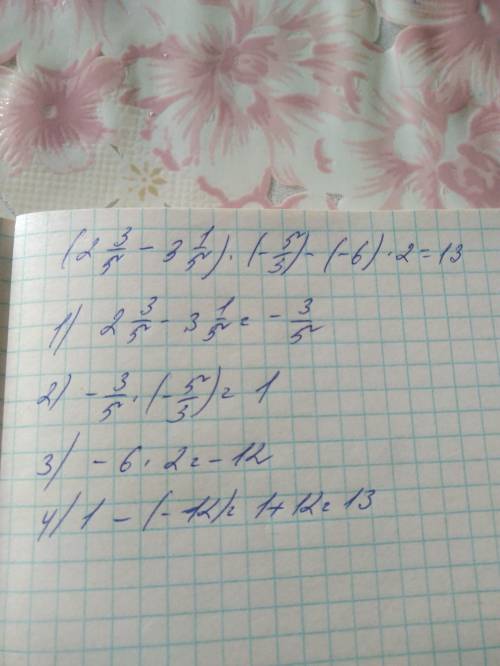 (2 3/5 - 3 1/5) · (-5/3) - (-6) · 2 = 13
1) 2 3/5 - 3 1/5 = - 3/5
2) - 3/5 · (- 5/3) = 1
3) - 6 · 2 = - 12
4) 1 - (- 12) = 1 + 12 = 13